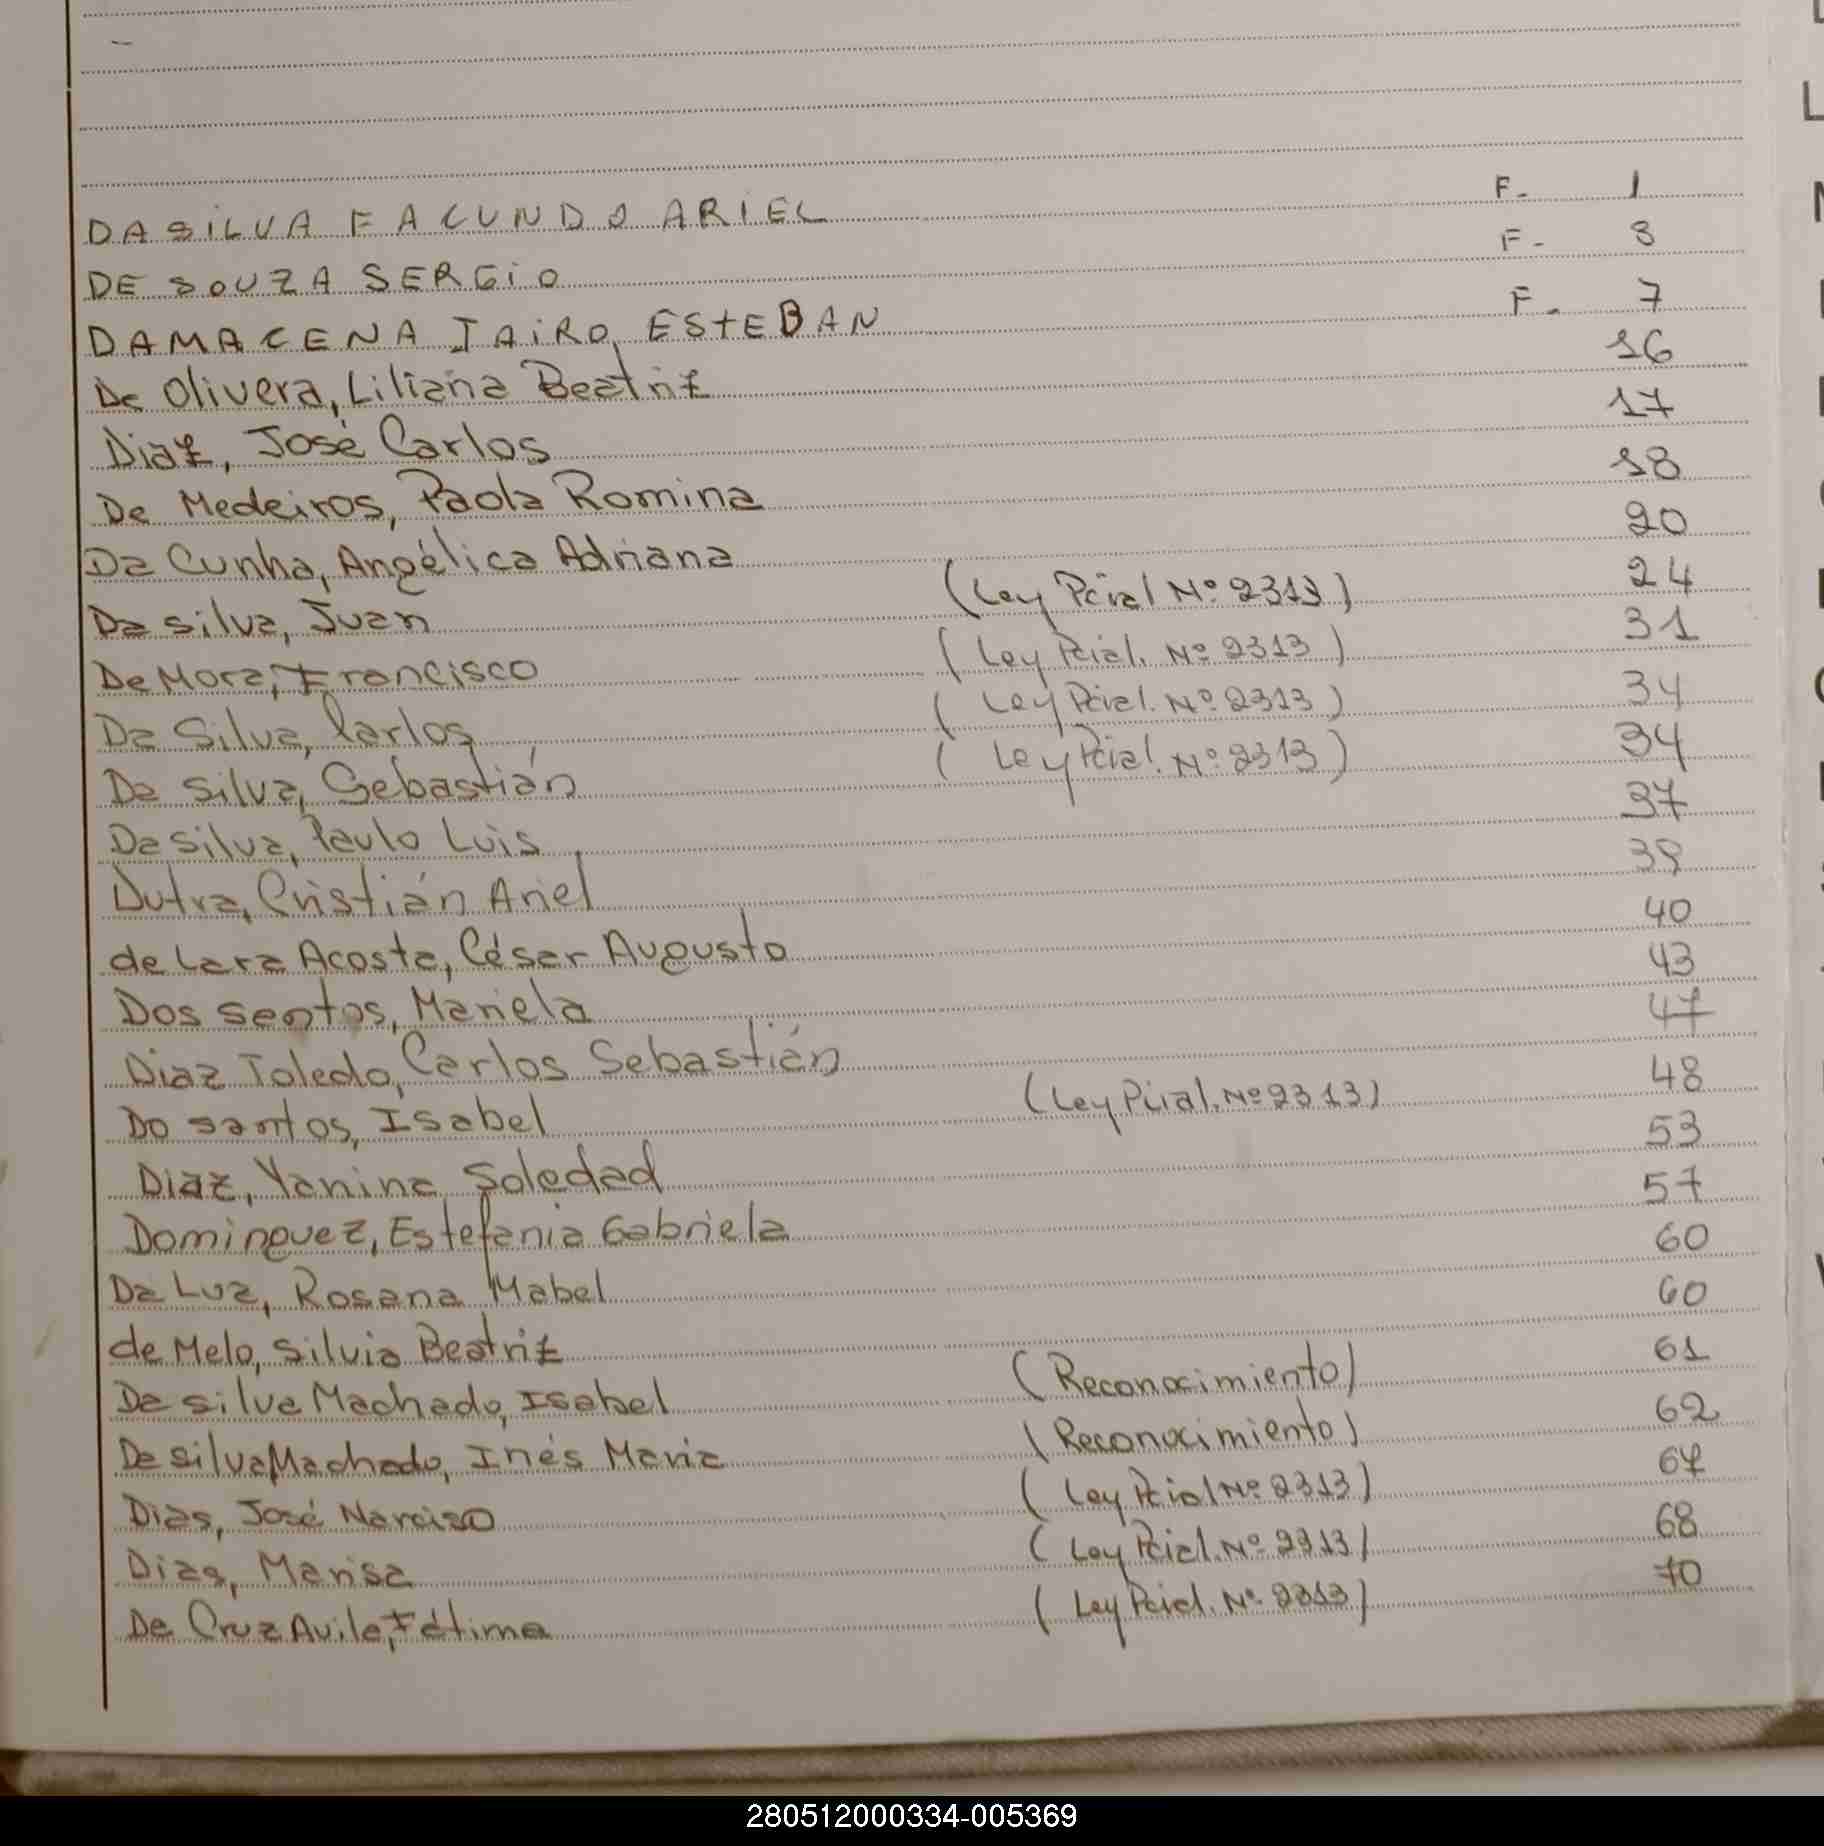 DA SILVA FACUNDO ARIEL F- 1
DE SOUZA SERGIO F- 3
DAMACENA JAIRO ESTEBAN F- 7
De Olivera, Liliana Beatriz 16
Diaz, José Carlos 17
De Medeiros, Paola Romina 18
Da Cunha, Angélica Adriana 20
Da silva, Juan (Ley Pcial Nº 2313) 24
De Mora, Francisco (Ley Pcial. Nº 2313) 31
Da Silva, Carlos (Ley Pcial. Nº 2313) 34
Da silva, Sebastián (Ley Pcial. Nº 2313) 34
Da silva, Paulo Luis 37
Dutra, Cristián Ariel 39
de Lara Acosta, César Augusto 40
Dos santos, Mariela 43
Diaz Toledo, Carlos Sebastián 47
Do santos, Isabel (Ley Pcial. Nº 2313) 48
Diaz, Yanina Soledad 53
Dominguez, Estefania Gabriela 57
Da Luz, Rosana Mabel 60
de Melo, Silvia Beatriz 60
Da silva Machado, Isabel (Reconocimiento) 61
Da silva Machado, Inés Maria (Reconocimiento) 62
Dias, José Narciso (Ley Pcial Nº 2313) 67
Dias, Marisa (Ley Pcial. Nº 2313) 68
De Cruz Avila, Fátima (Ley Pcial. Nº 2313) 70
280512000334-005369